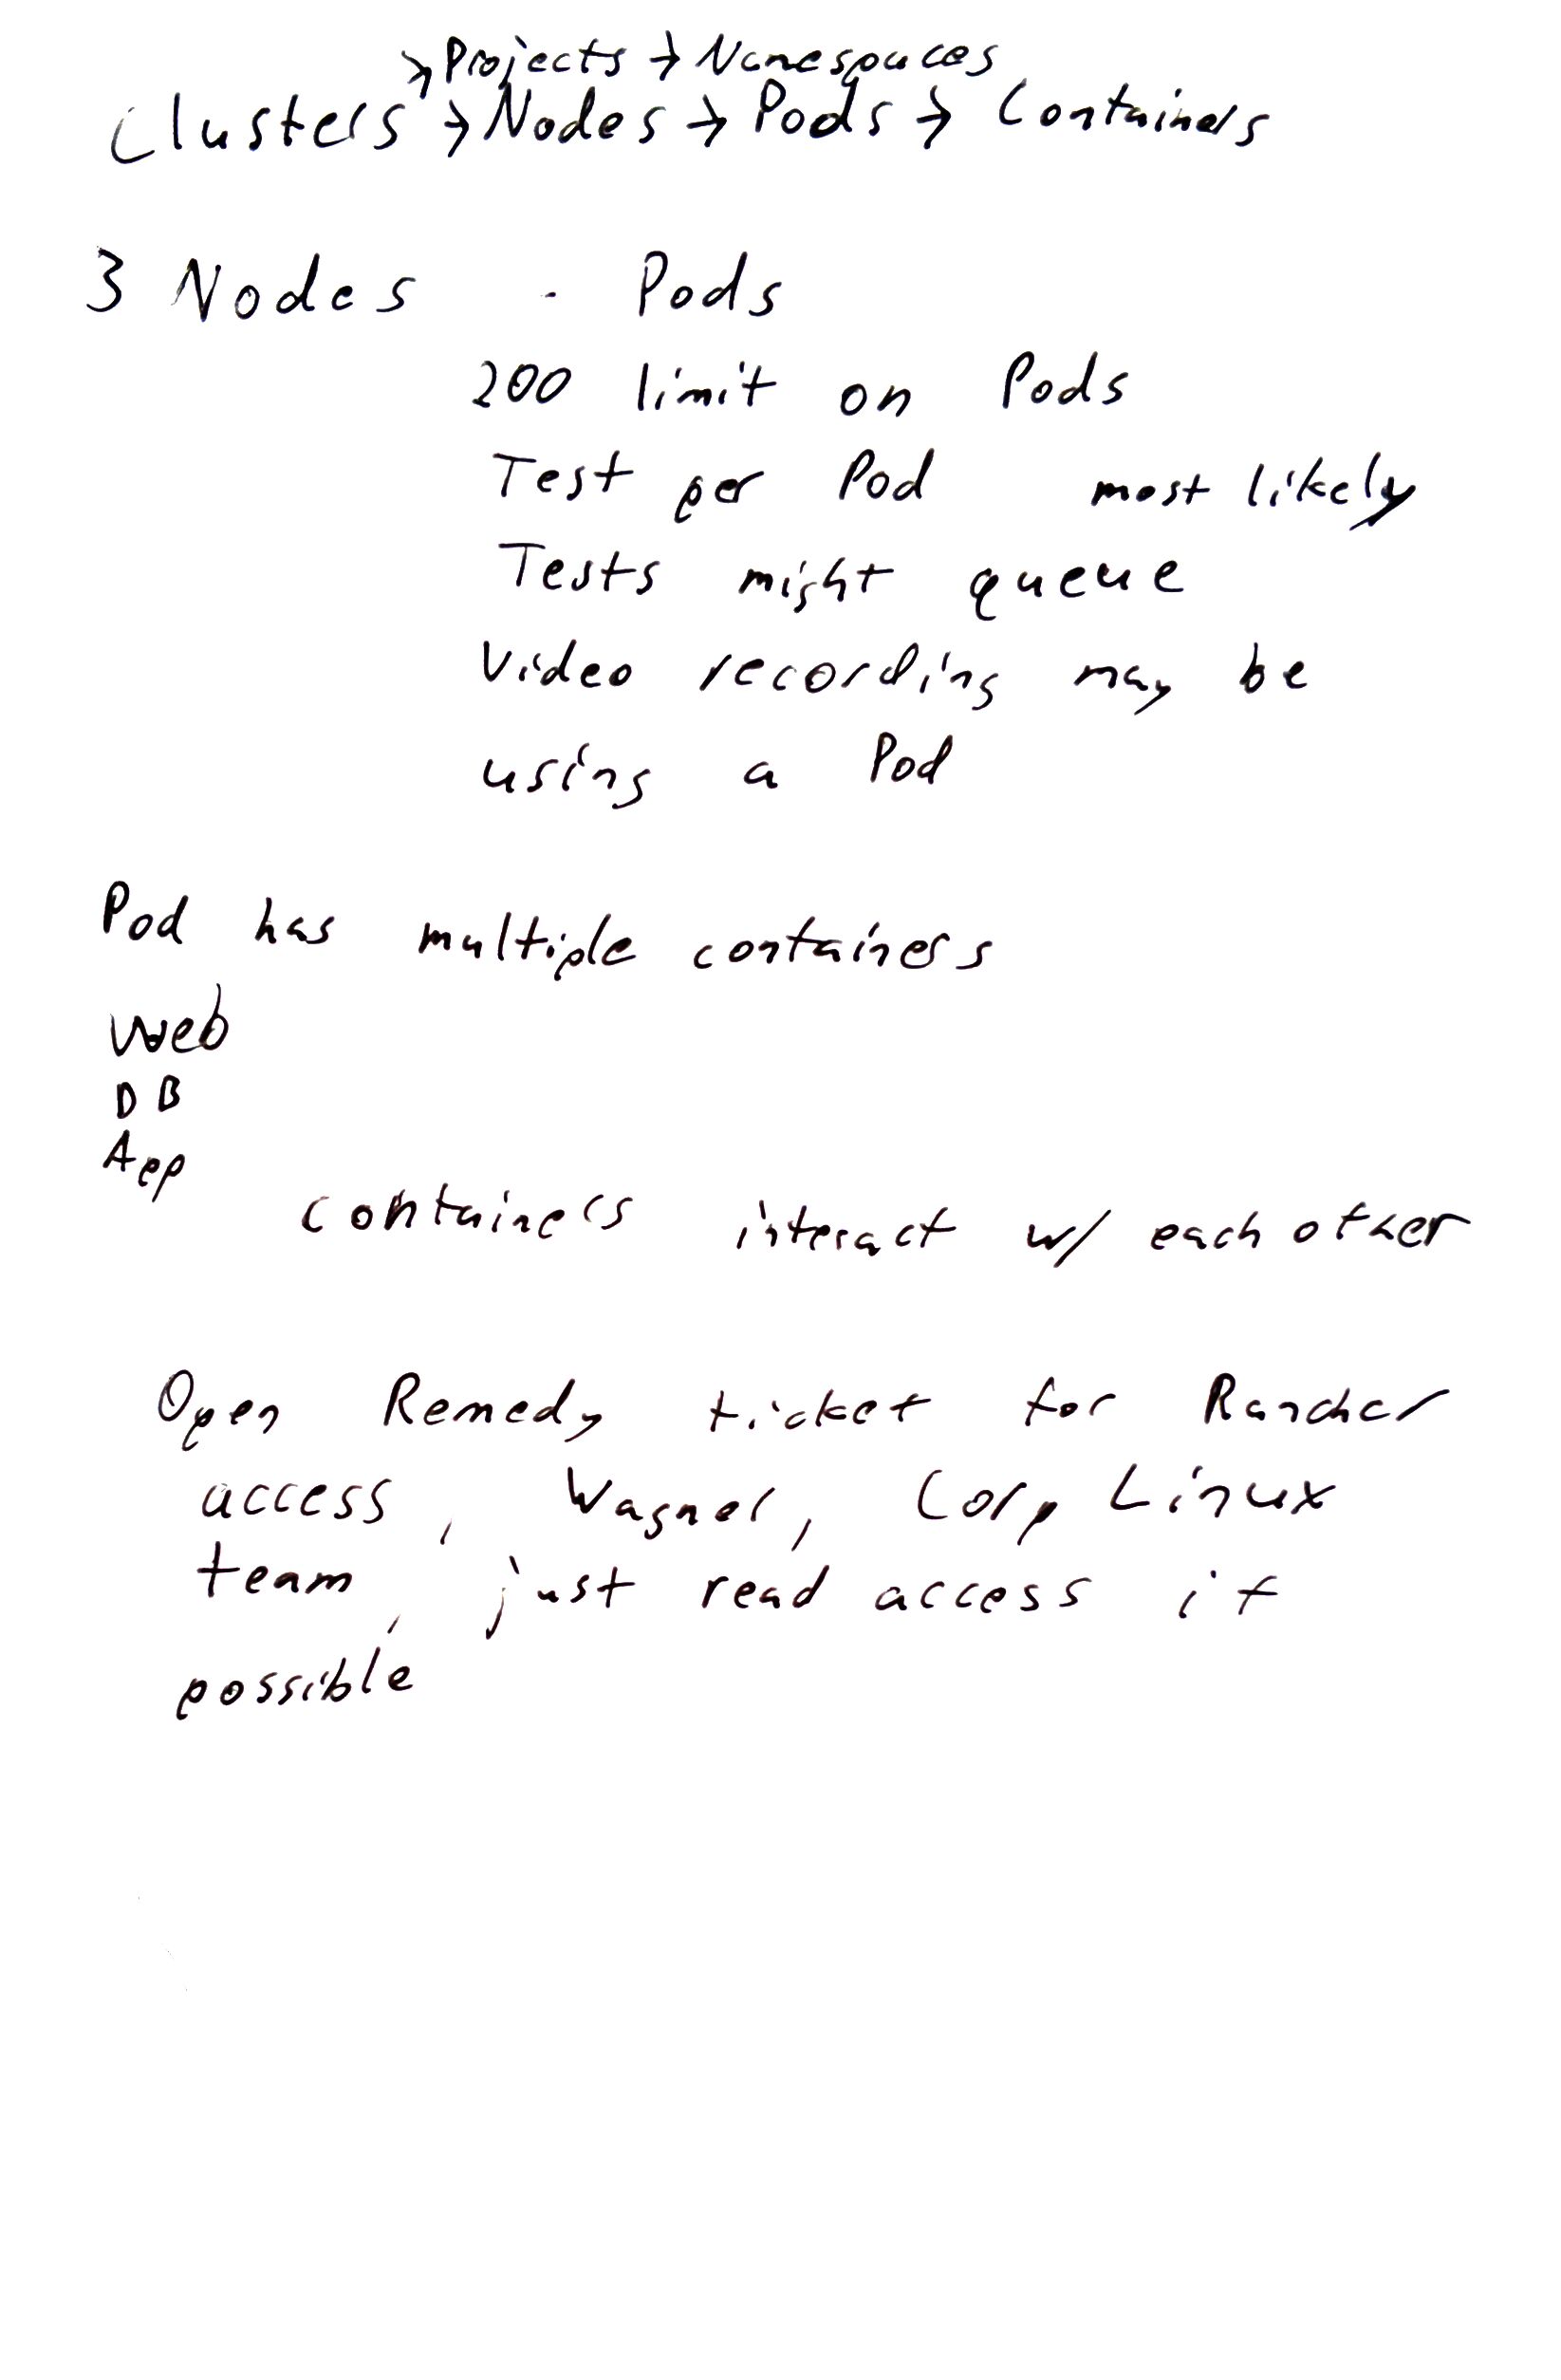 → Projects → Namespaces
Clusters → Nodes → Pods → Containers
3 Nodes - Pods
200 limit on Pods
Test per Pod most likely
Tests might queue
Video recording may be
using a Pod
Pod has multiple containers
Web
DB
App
containers interact w/ each other
Open Remedy ticket for Rancher
access, Wagner, Corp Linux
team, just read access if
possible